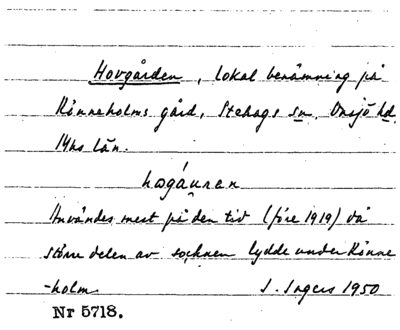 Hovgården, lokal benämning på
Rönneholms gård, Stehags sn. Onsjö hd.
Mhs län.
hωgáʋrεn
Användes mest på den tid (före 1919) då
större delen av socknen lydde under Rönne
-holm. S. Ingers 1950
Nr 5718.